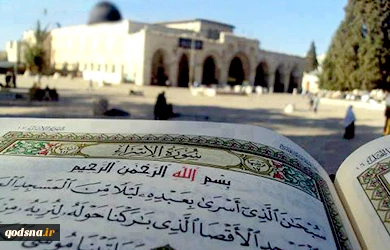 سُورَةُ الْإِسْرَاءِ
بِسْمِ اللَّهِ الرَّحْمَٰنِ الرَّحِيمِ
سُبْحَٰنَ الَّذِي أَسْرَىٰ بِعَبْدِهِ لَيْلًا مِّنَ الْمَسْجِدِ
الْأَقْصَا الَّذِي بَٰرَكْنَا حَوْلَهُ لِنُرِيَهُ
qodsna.ir